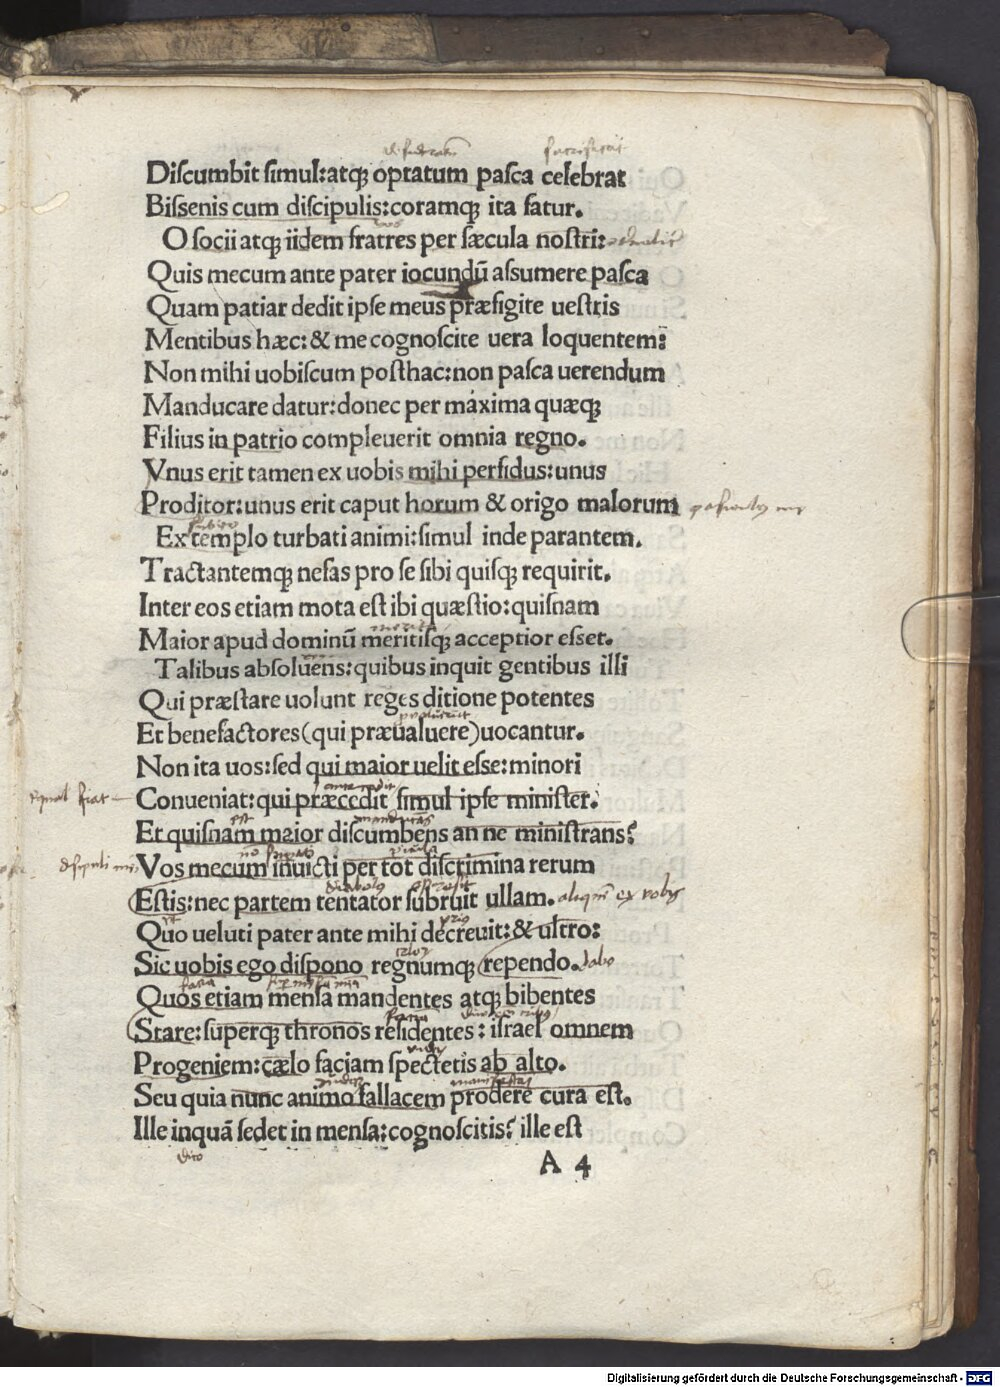 Diſcumbit ſimul:atqꝫ optatum paſca celebrat
Biſſenis cum diſcipulis:coramqꝫ ita fatur.
O ſocii atqꝫ iidem fratres per ſæcula noſtri:
Quis mecum ante pater iocundū aſſumere paſca
Quam patiar dedit ipſe meus præfigite ueſtris
Mentibus hæc:& me cognoſcite uera loquentem:
Non mihi uobiſcum poſthac:non paſca uerendum
Manducare datur:donec per máxima quæqꝫ
Filius in patrio compleuerit omnia regno.
Vnus erit tamen ex uobis mihi perfidus:unus
Proditor:unus erit caput horum & origo malorum
subito
Extemplo turbati animi:ſimul inde parantem.
Tractantemqꝫ nefas pro ſe ſibi quiſqꝫ requirit.
Inter eos etiam mota eſt ibi quæſtio:quiſnam
Maior apud dominū meritiſqꝫ acceptior eſſet.
Talibus abſoluens:quibus inquit gentibus illi
Qui præſtare uolunt reges ditione potentes
Et benefactores(qui præualuere)uocantur.
Non ita uos:ſed qui maior uelit eſſe:minori
Conueniat:qui præcedit ſimul ipſe miniſter.
est
Et quiſnam maior diſcumbens an ne miniſtrans?
Vos mecum inuicti per tot diſcrimina rerum
Eſtis:nec partem tentator ſubruit ullam. ex vobis
Quo ueluti pater ante mihi decreuit:& ultro:
Sic uobis ego diſpono regnumqꝫ rependo. dabo
Quos etiam menſa mandentes atqꝫ bibentes
Stare:ſuperqꝫ thronos reſidentes: iſrael omnem
Progeniem:cælo faciam ſpectetis ab alto.
Seu quia nunc animo fallacem prodere cura eſt.
Ille inquā ſedet in menſa:cognoſcitis? ille eſt
dico
A 4
Digitalisierung gefördert durch die Deutsche Forschungsgemeinschaft - DFG